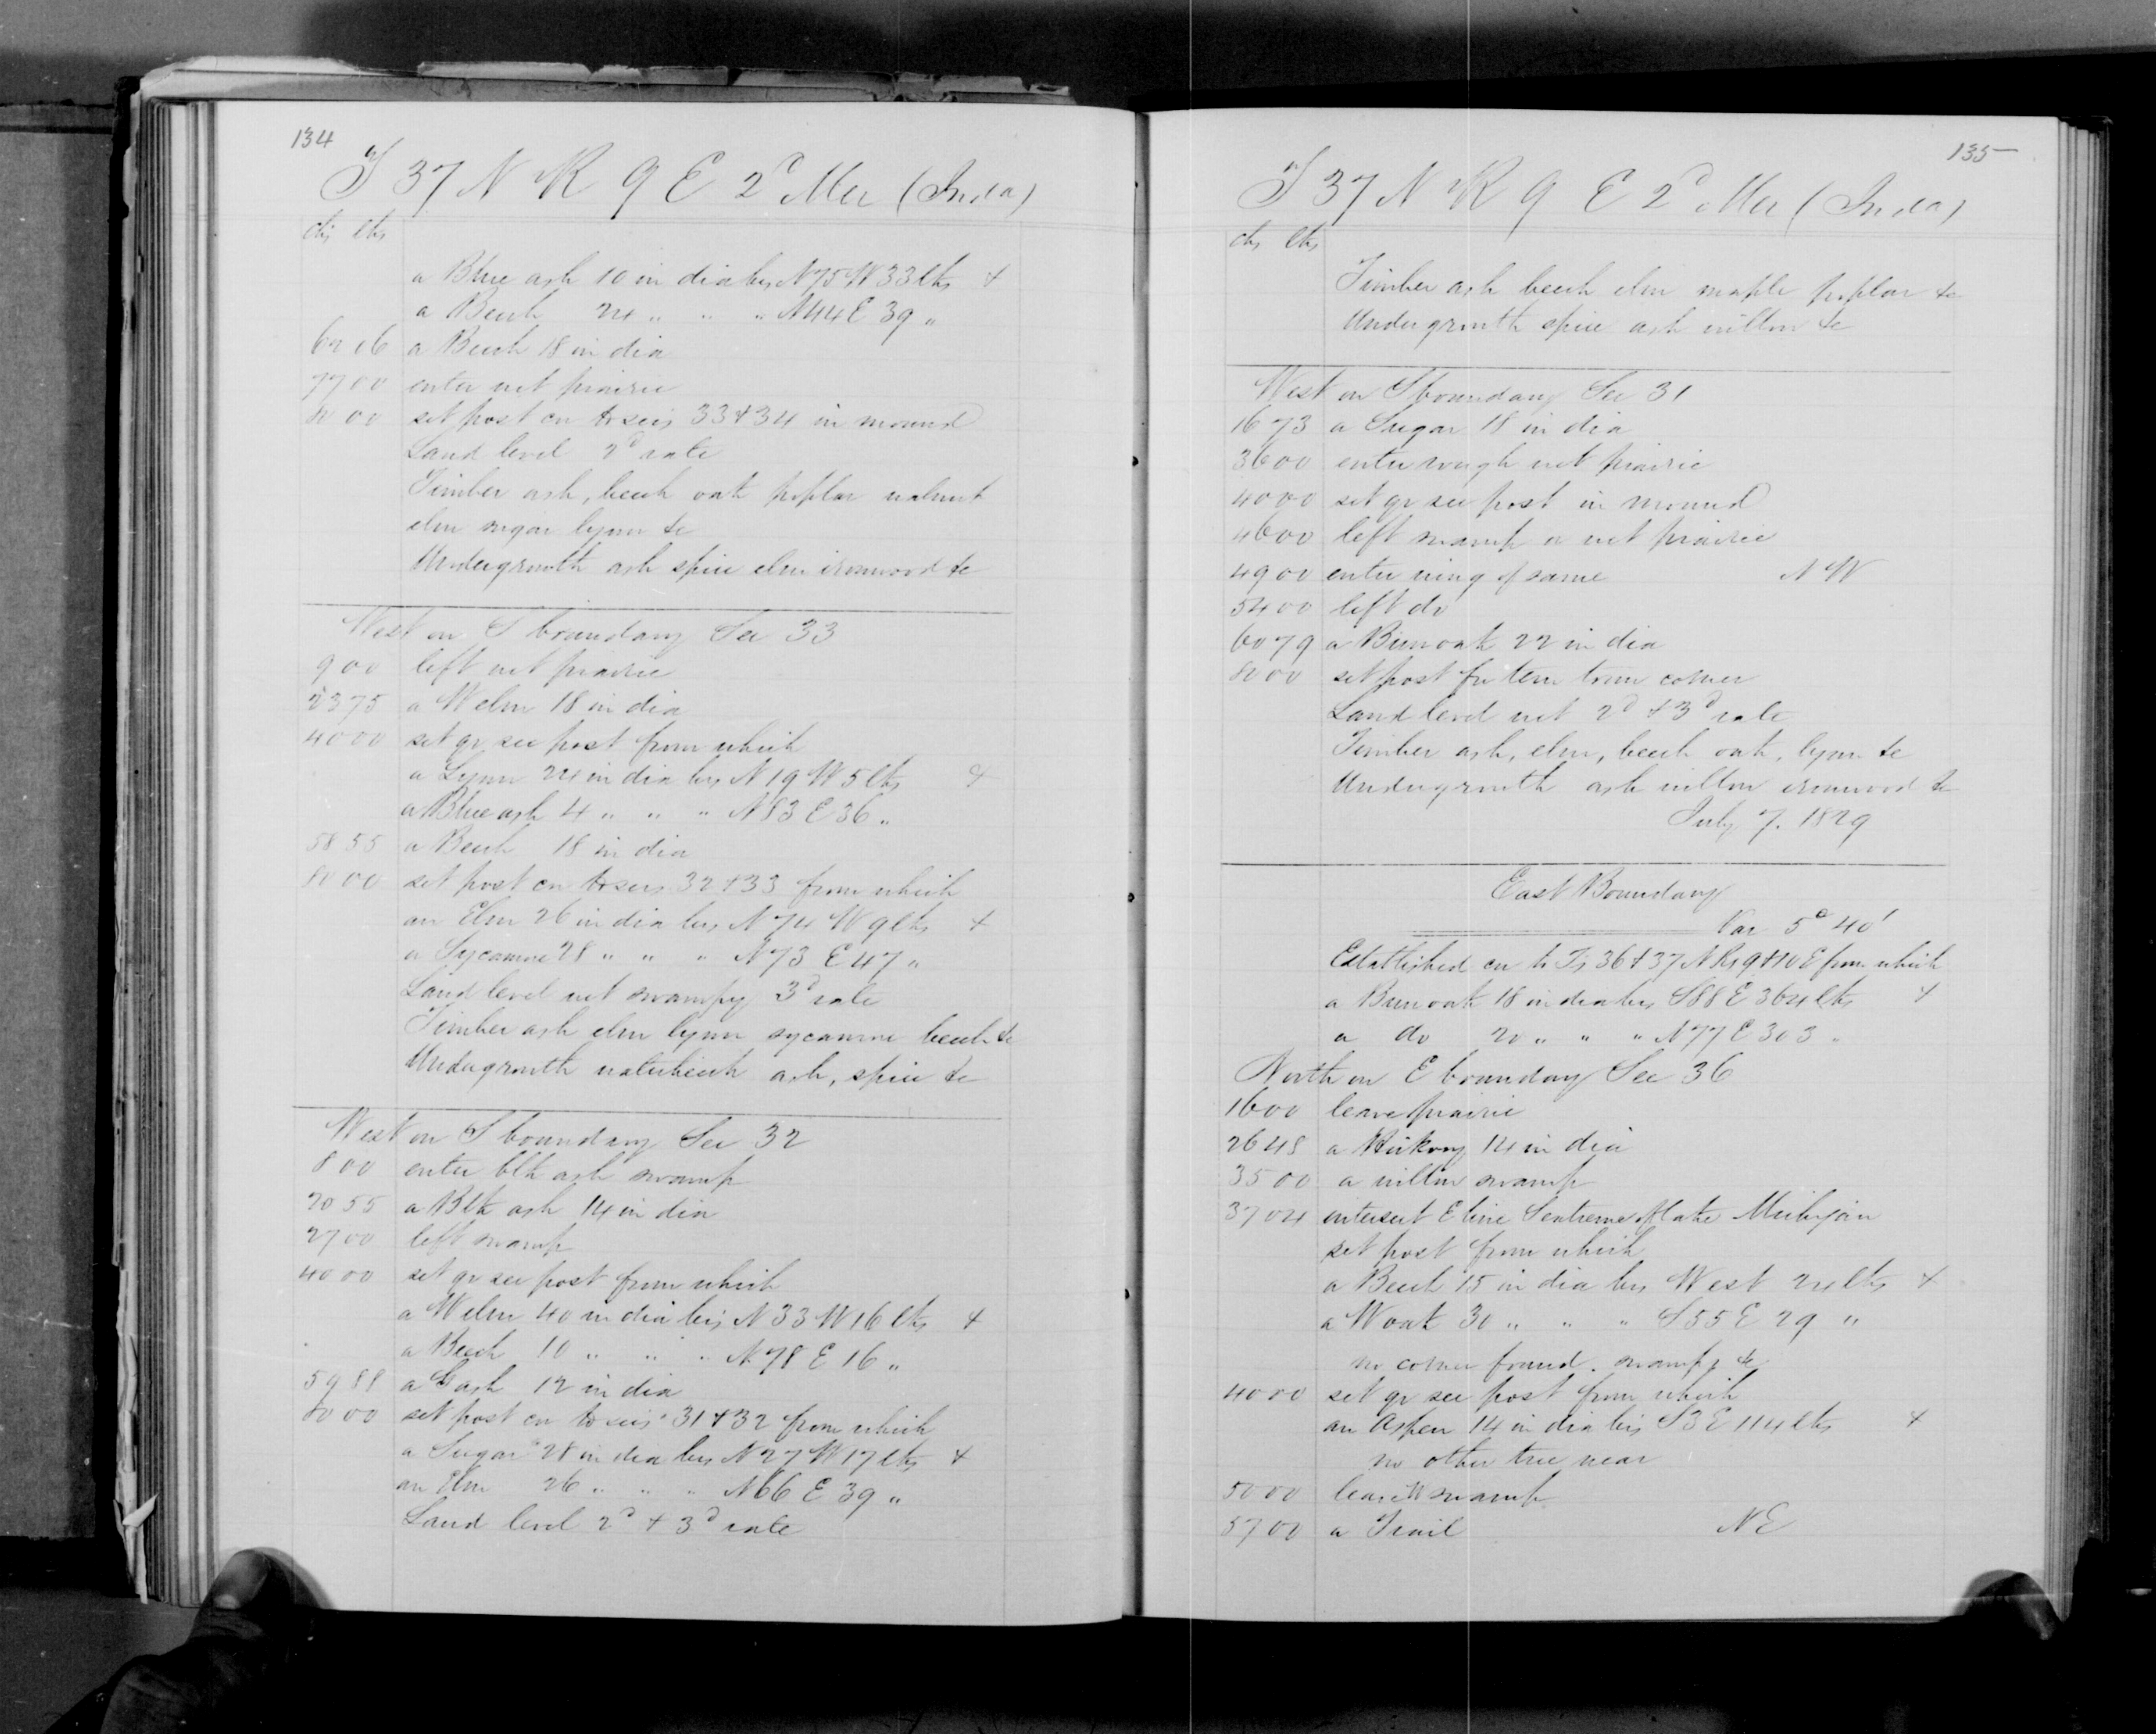 134
T 37 N R 9 E 2d Mer (Inda)
chs lks
a Blue ash 10 in dia brs N75W 33 lks &
a Beech 24 " " " N44E 39 "
60 06 a Beech 18 in dia
77 00 enter wet prairie
80 00 set post cor to secs 33 & 34 in mound
Land level 2d rate
Timber ash, beech oak poplar walnut
elm sugar lynn &c
Undergrowth ash spice elm ironwood &c
West on S boundary Sec 33
9 00 left wet prairie
23 75 a W elm 18 in dia
40 00 set qr sec post from which
a Lynn 24 in dia brs N 19 W 5 lks &
a Blue ash 4 " " " N83 E 36 "
58 55 a Beech 18 in dia
80 00 set post cor to secs 32 & 33 from which
an Elm 26 in dia brs N 74 W 9 lks &
a Sycamore 28 " " " N73 E 47 "
Land level wet swampy 3d rate
Timber ash elm lynn sycamore beech &c
Undergrowth ash, spice &c
West on S boundary Sec 32
8 00 enter blk ash swamp
20 55 a Blk ash 14 in dia
27 00 left swamp
40 00 set qr sec post from which
a W elm 40 in dia brs N 33 W 16 lks &
a Beech 10 " " " N 78 E 16 "
59 88 a ash 12 in dia
80 00 set post cor to secs 31 & 32 from which
a Sugar 28 in dia brs N 27 W 17 lks &
an Elm 26 " " " N66 E 39 "
Land level 2d & 3d rate
135
T 37 N R 9 E 2d Mer (Inda)
chs lks
Timber ash beech elm maple poplar &c
Undergrowth spice ash willow &c
West on S boundary Sec 31
16 73 a Sugar 18 in dia
36 00 enter rough wet prairie
40 00 set qr sec post in mound
46 00 left swamp or wet prairie
49 00 enter wing of same N W
54 00 left do
60 79 a Bur oak 22 in dia
80 00 set post for tem town corner
Land level wet 2d & 3d rate
Timber ash, elm, beech oak, lynn &c
Undergrowth ash willow ironwood &c
July 7. 1829
East Boundary
Var 5° 40'
Established cor to Ts 36 & 37 N Rs 9 & 10 E from which
a Bur oak 18 in dia brs S88 E 364 lks &
a do 20 " " " N77 E 303 "
North on E boundary Sec 36
16 00 leave prairie
26 48 a Hickory 14 in dia
35 00 a willow swamp
37 04 intersect E line S extreme of lake Michigan
set post from which
a Beech 15 in dia brs West 24 lks &
a W oak 30 " " " S55 E 29 "
no corner found. swamp &c
40 00 set qr sec post from which
an Aspen 14 in dia brs S3 E 114 lks &
no other tree near
50 00 leave W swamp
57 00 a Trail N E